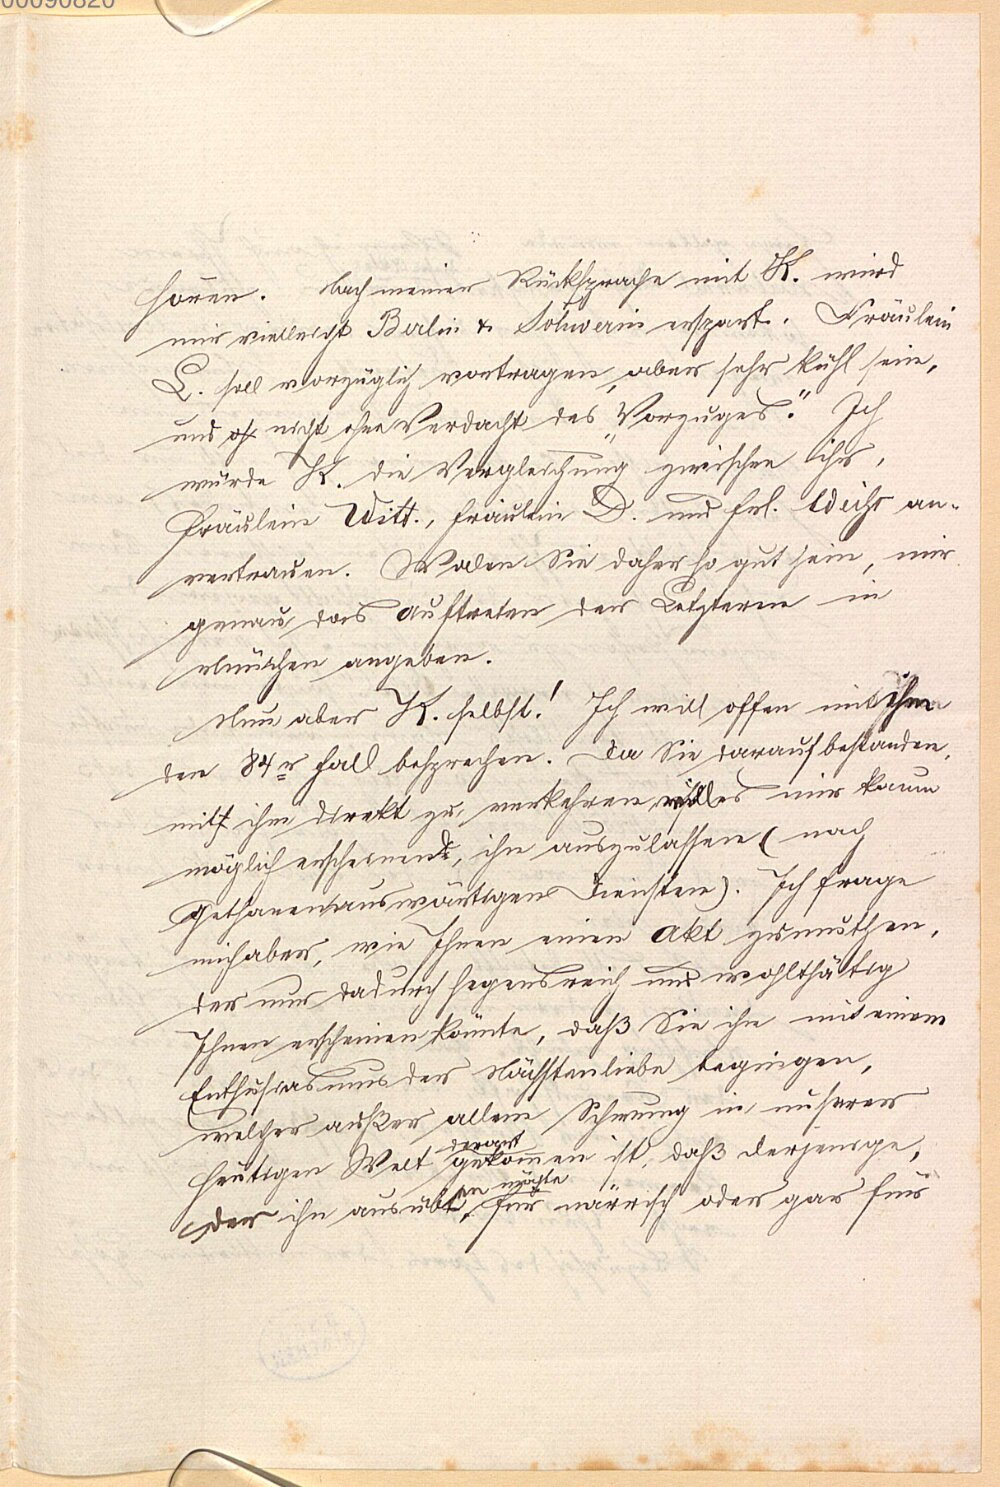 00090820
hören. Nach meiner Rücksprache mit K. wird
mir vielleicht Berlin & Schwerin erspart. Fräulein
L. soll vorzüglich vortragen, aber sehr kühl sein,
und oft nicht ohne Verdacht des „Vorzuges." Ich
würde K. die Vergleichung zwischen ihr,
Fräulein Witt., Fräulein D. und Frl. Weihr an-
vertrauen. Wollen Sie daher so gut sein, mir
genau das Auftreten der Letzteren in
München angeben.
Nun aber K. selbst! Ich will offen mit ihm
den 84r Fall besprechen. Da Sie darauf bestanden,
mit ihm direkt zu verkehren, will es mir kaum
möglich erscheinen, ihn auszulassen (nach
gethanen auswärtigen Diensten). Ich frage
mich aber, wie Ihnen einen Akt zumuthen,
der nur dadurch segensreich und wohlthätig
Ihnen erscheinen könnte, daß Sie ihn mit einem
Enthusiasmus der Nächstenliebe begingen,
welcher außer allem Schwung in unserer
heutigen Welt derart gekommen ist, daß derjenige,
der ihn ausüben möchte, für närrisch oder gar für